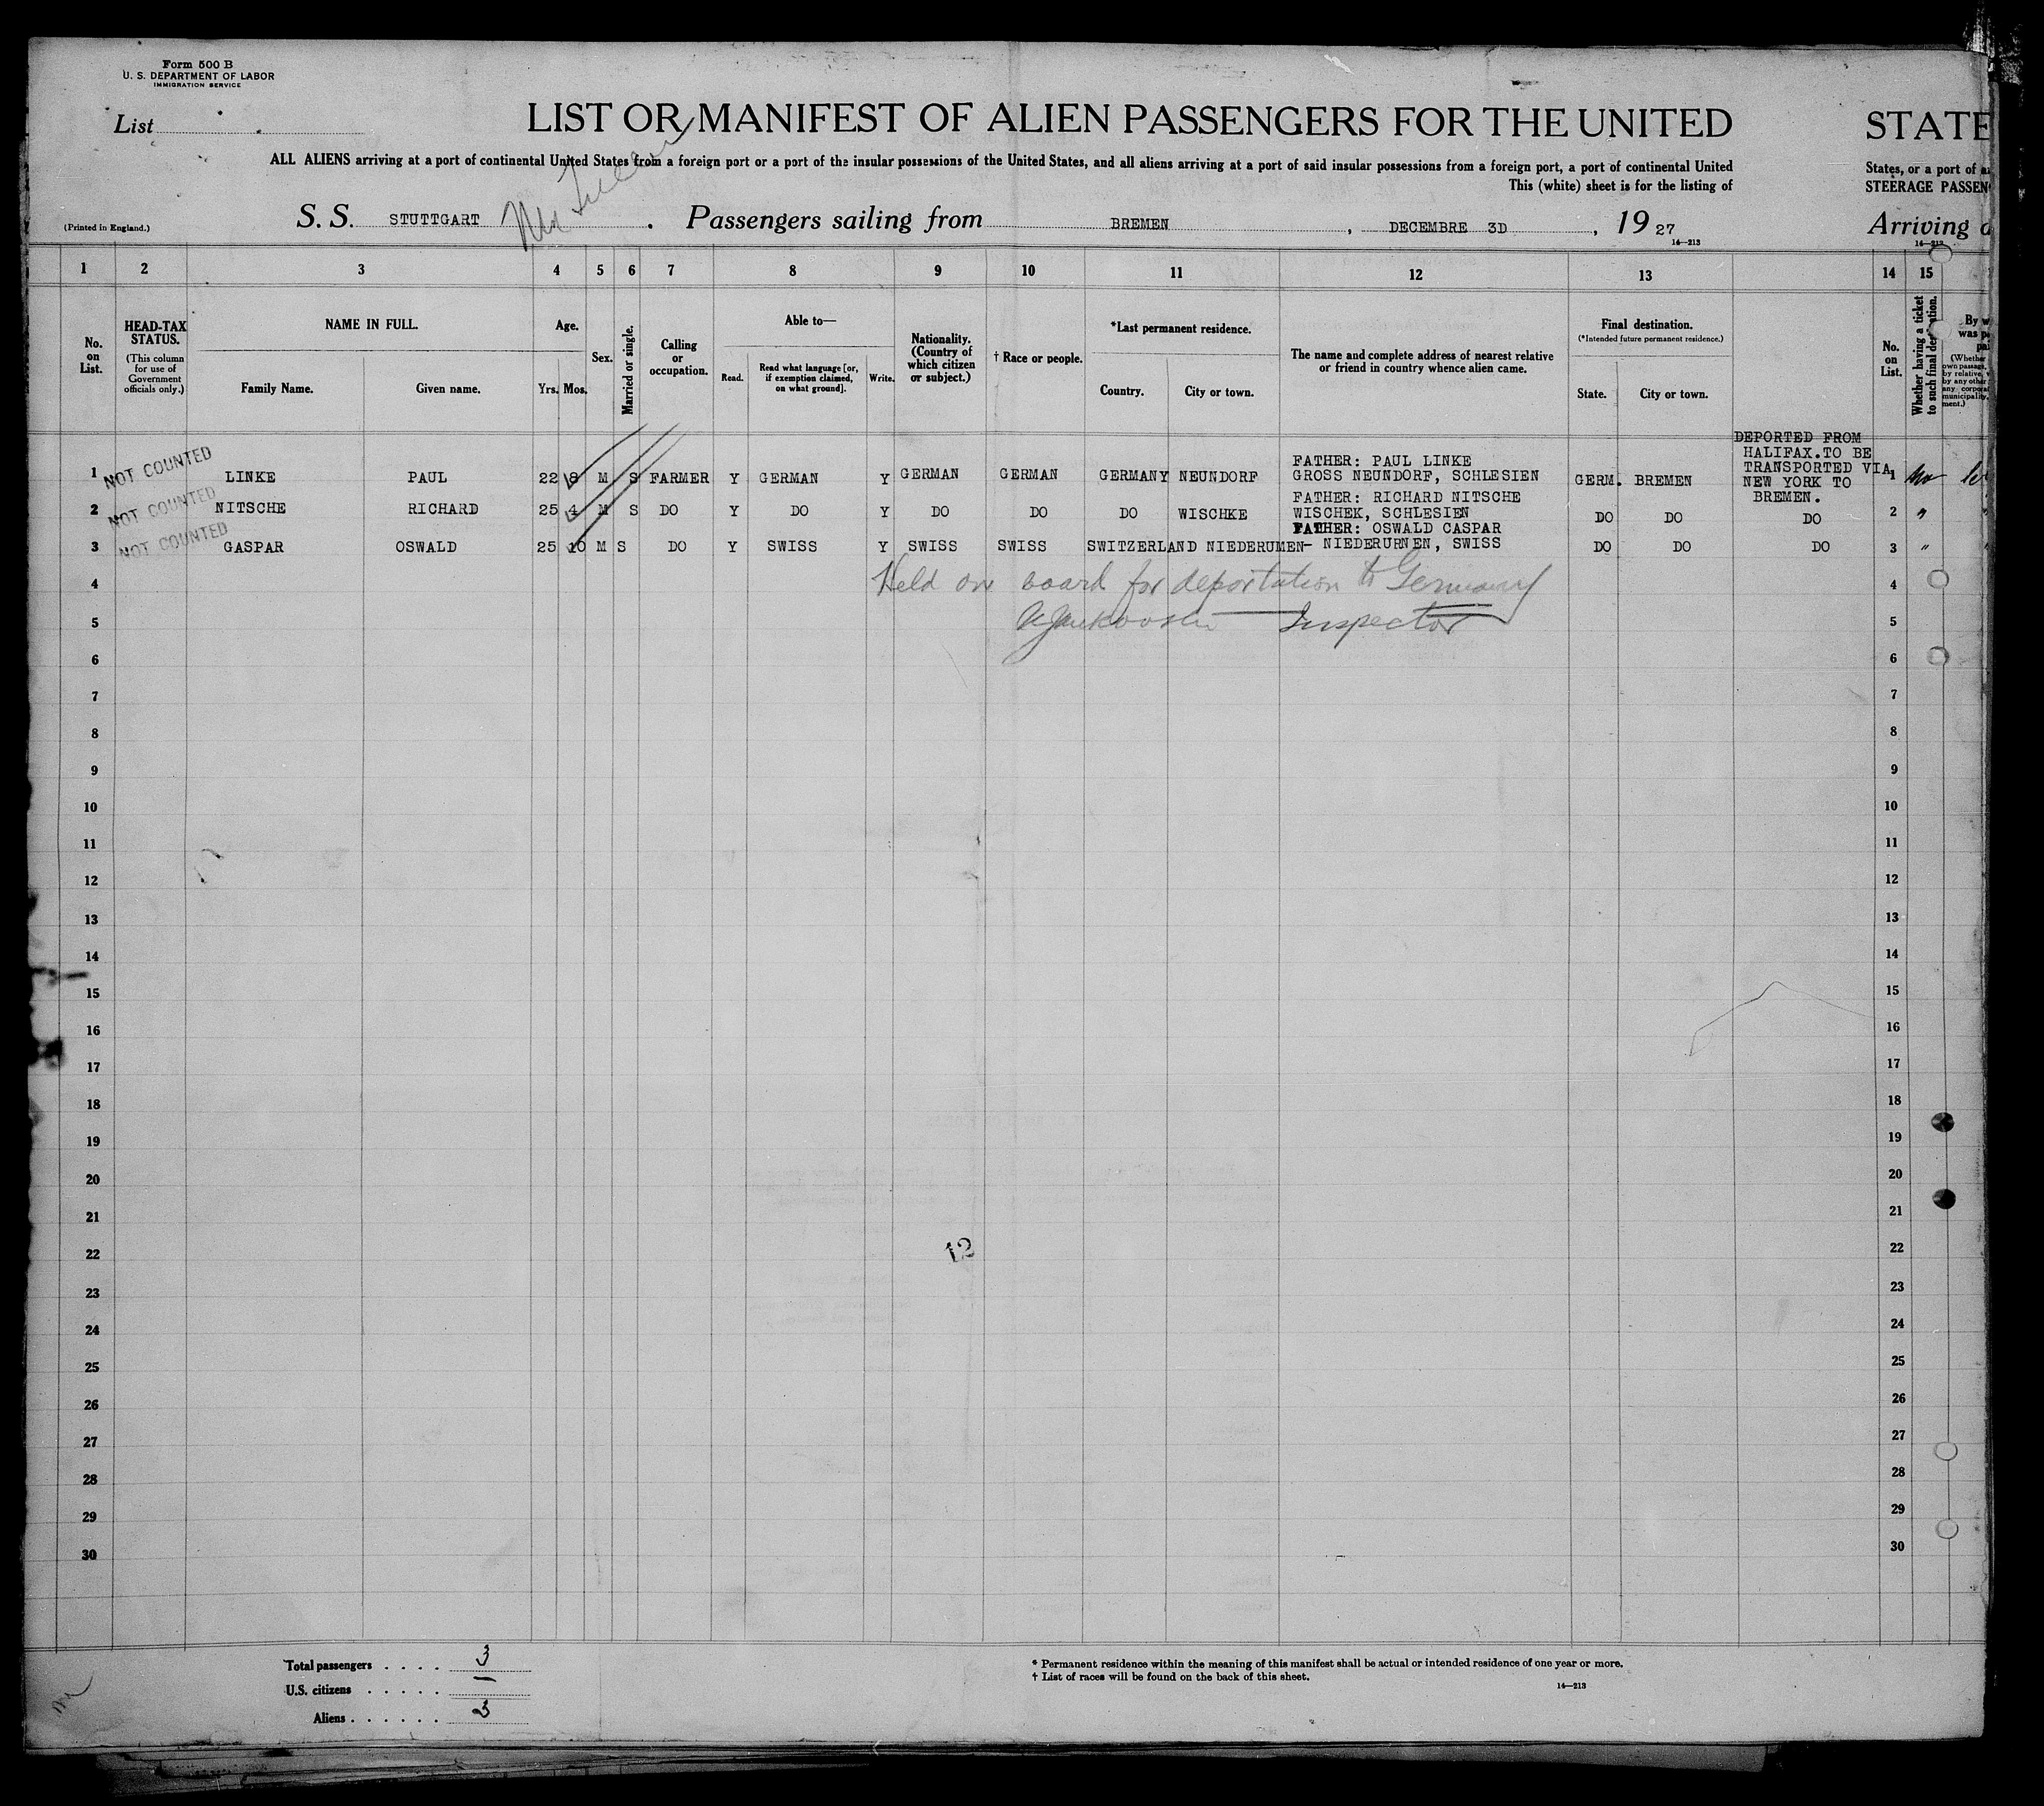 Form 500 B
U. S. DEPARTMENT OF LABOR
IMMIGRATION SERVICE
List
LIST OR MANIFEST OF ALIEN PASSENGERS FOR THE UNITED STATE
ALL ALIENS arriving at a port of continental United States from a foreign port or a port of the insular possessions of the United States, and all aliens arriving at a port of said insular possessions from a foreign port, a port of continental United
States, or a port of
This (white) sheet is for the listing of
STEERAGE PASSEN
(Printed in England.)
S. S. STUTTGART . Passengers sailing from BREMEN , DECEMBRE 3D , 19 27
Arriving
14—213
14—213
1 2 3 4 5 6 7 8 9 10 11 12 13 14 15
No. on List.
HEAD-TAX STATUS.
(This column for use of Government officials only.)
NAME IN FULL.
Family Name. Given name.
Age.
Yrs. Mos.
Sex.
Married or single.
Calling or occupation.
Able to—
Read. Read what language [or, if exemption claimed, on what ground]. Write.
Nationality. (Country of which citizen or subject.)
† Race or people.
*Last permanent residence.
Country. City or town.
The name and complete address of nearest relative or friend in country whence alien came.
Final destination.
(*Intended future permanent residence.)
State. City or town.
No. on List.
Whether having a ticket to such final destination.
By w
was p
(Whether
own passage,
by relative,
by any other
any corpora
municipality,
ment.)
DEPORTED FROM
HALIFAX.TO BE
TRANSPORTED VIA
NEW YORK TO
BREMEN.
NOT COUNTED
FATHER: PAUL LINKE
1 LINKE PAUL 22 8 M S FARMER Y GERMAN Y GERMAN GERMAN GERMANY NEUNDORF GROSS NEUNDORF, SCHLESIEN GERM. BREMEN 1 no
NOT COUNTED
FATHER: RICHARD NITSCHE
2 NITSCHE RICHARD 25 4 M S DO Y DO Y DO DO DO WISCHKE WISCHEK, SCHLESIEN DO DO DO 2 "
NOT COUNTED
FATHER: OSWALD CASPAR
3 GASPAR OSWALD 25 10 M S DO Y SWISS Y SWISS SWISS SWITZERLAND NIEDERUMEN- NIEDERURNEN, SWISS DO DO DO 3 "
4 Held on board for deportation to Germany 4
5 Inspector 5
6 6
7 7
8 8
9 9
10 10
11 11
12 12
13 13
14 14
15 15
16 16
17 17
18 18
19 19
20 20
21 21
22 12 22
23 23
24 24
25 25
26 26
27 27
28 28
29 29
30 30
Total passengers . . . . 3
U.S. citizens . . . . . —
Aliens . . . . . . 3
* Permanent residence within the meaning of this manifest shall be actual or intended residence of one year or more.
† List of races will be found on the back of this sheet.
14—213